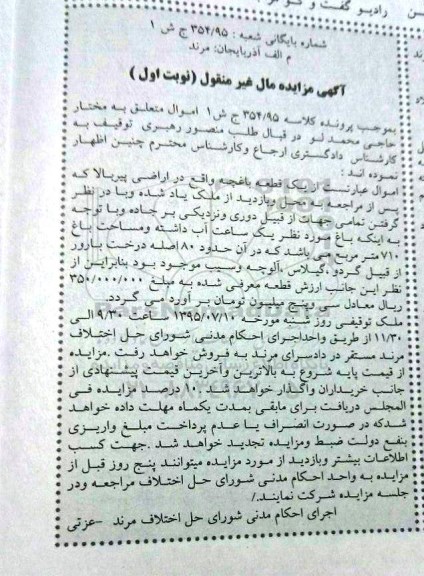 رادیو گفت و گو
شماره بایگانی شعبه : ۳۵۴/۹۵ ج ش ۱
م الف آذربایجان: مرند
آگهی مزایده مال غیر منقول (نوبت اول )
بموجب پرونده کلاسه ۳۵۴/۹۵ ج ش۱ اموال متعلق به مختار
حاجی محمد لو در قبال طلب منصور رهبری توقیف به
کارشناس دادگستری ارجاع وکارشناس محترم چنین اظهار
نموده اند :
اموال عبارتست از یک قطعه باغچه واقع در اراضی پیربالا که
پس از مراجعه به محل وبازدید از ملک یاد شده وبا در نظر
گرفتن تمامی جهات از قبیل دوری ونزدیکی بر جاده وبا توجه
به اینکه باغ مورد نظر یک ساعت آب داشته ومساحت باغ
۷۱۰متر مربع می باشد که در آن حدود ۸۰اصله درخت بارور
از قبیل گردو ،گیلاس ،آلوچه وسیب موجود بود بنابراین از
نظر این جانب ارزش قطعه معرفی شده به مبلغ ۳۵۰/۰۰۰/۰۰۰
ریال معادل سی وپنج میلیون تومان بر آورد می گردد.
ملک توقیفی روز شنبه مورخه ۱۳۹۵/۰۷/۱۰ ساعت ۹/۳۰ الی
۱۱/۳۰ از طریق واحداجرای احکام مدنی شورای حل اختلاف
مرند مستقر در دادسرای مرند به فروش خواهد رفت .مزایده
از قیمت پایه شروع به بالاترین وآخرین قیمت پیشنهادی از
جانب خریداران واگذار خواهد شد ۱۰ درصد مزایده فی
المجلس دریافت برای مابقی بمدت یکماه مهلت داده خواهد
شدکه در صورت انصراف یا عدم پرداخت مبلغ واریزی
بنفع دولت ضبط ومزایده تجدید خواهد شد .جهت کسب
اطلاعات بیشتر وبازدید از مورد مزایده میتوانند پنج روز قبل از
مزایده به واحد احکام مدنی شورای حل اختلاف مراجعه ودر
جلسه مزایده شرکت نمایند./
اجرای احکام مدنی شورای حل اختلاف مرند –عزتی